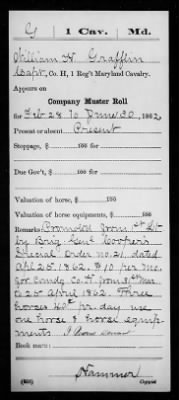 G | 1 Cav. | Md.
William H. Grafflin
Capt., Co. H, 1 Reg't Maryland Cavalry.
Appears on
Company Muster Roll
for Feb 28 to June 30, 1862
Present or absent Present
Stoppage, $ 100 for
Due Gov't, $ 100 for
Valuation of horse, $ 100
Valuation of horse equipments, $ 100
Remarks: Promoted from 1st Lt
by Brig Genl Cooper's
Special Order no. 21, dated
Apl 25, 1862. $10 per mo.
for Comdg Co. H from 31st Mar
to 25 April 1862. Three
horses 40ct pr. day use
one horse & horse equip-
ments.
Book mark:
Hammer
Copyist.